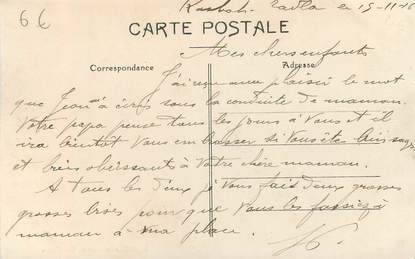 66
Kasbah Tadla le 19-11-16
CARTE POSTALE
Mes chers enfants
Correspondance Adresse
J'ai reçu avec plaisir le mot
que Jean a écris sous la conduite de maman.
Votre papa pense tous les jours à Vous et il
ira bientot Vous embrasser si Vous êtes bien sages
et très obéissants à Votre chère maman.
A tous les deux je Vous fait deux grosses
grosses bises pour que Vous les fassiez à
maman à ma place.